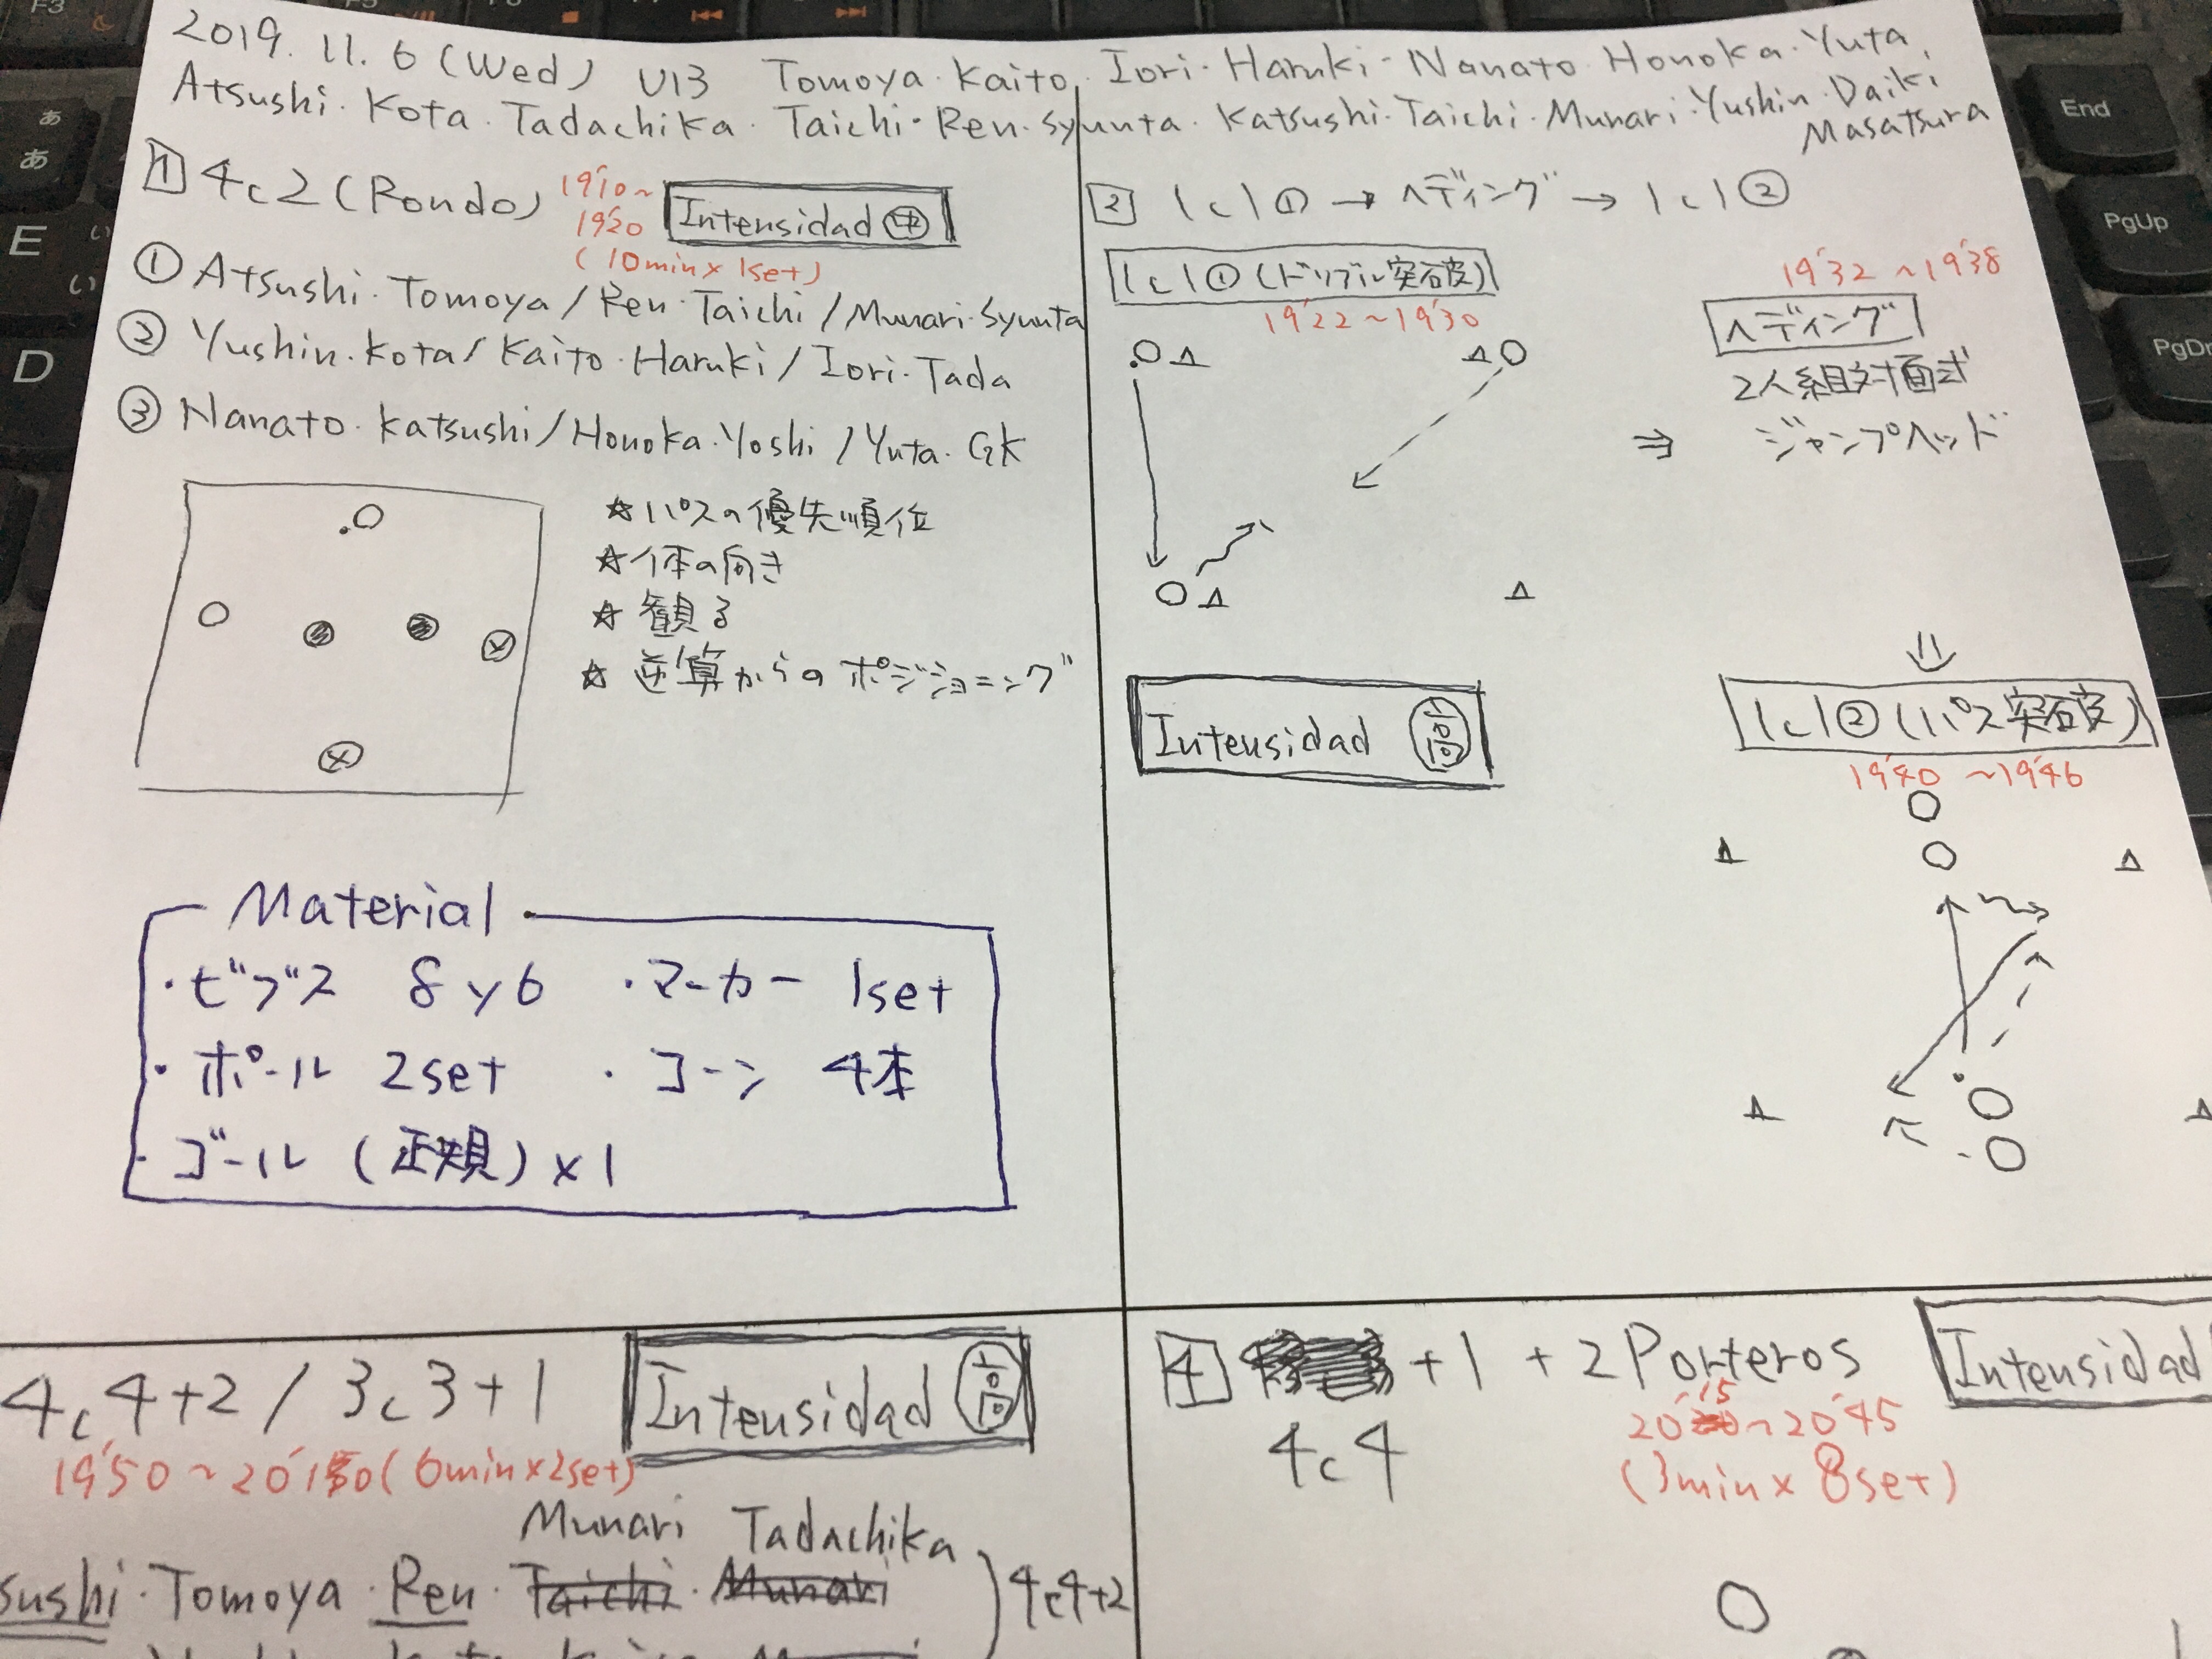 2019. 11. 6 (Wed) U13 Tomoya・Kaito・Iori・Haruki・Nanato・Honoka・Yuta・
Atsushi・Kota・Tadachika・Taichi・Ren・Syunta・Katsushi・Taichi・Munari・Yushin・Daiki
Masatsura
1 4c2 (Rondo)
19'10~
19'20
(10min×1set)
Intensidad 中
① Atsushi・Tomoya/Ren・Taichi/Munari・Syunta
② Yushin・Kota/Kaito・Haruki/Iori・Tada
③ Nanato・Katsushi/Honoka・Yoshi/Yuta・GK
☆パスの優先順位
☆体の向き
☆観る
☆逆算からのポジショニング
Material
・ビブス 8y6 ・マーカー 1set
・ポール 2set ・コーン 4本
・ゴール (正規)×1
2 1c1① → ヘディング → 1c1②
1c1① (ドリブル突破)
19'22~19'30
19'32~19'38
ヘディング
2人組対面式
⇒ ジャンプヘッド
Intensidad 高
1c1② (パス突破)
19'40~19'46
4c4+2 / 3c3+1
Intensidad 高
(6min×2set)
Munari Tadachika
sushi・Tomoya・Ren・Taichi・Munari
4c4+2
4 +1 +2Porteros
Intensidad
4c4
20'15~20'45
(3min×8set)
End
PgUp
PgDn
F3
E
D
あ
あ
い
い